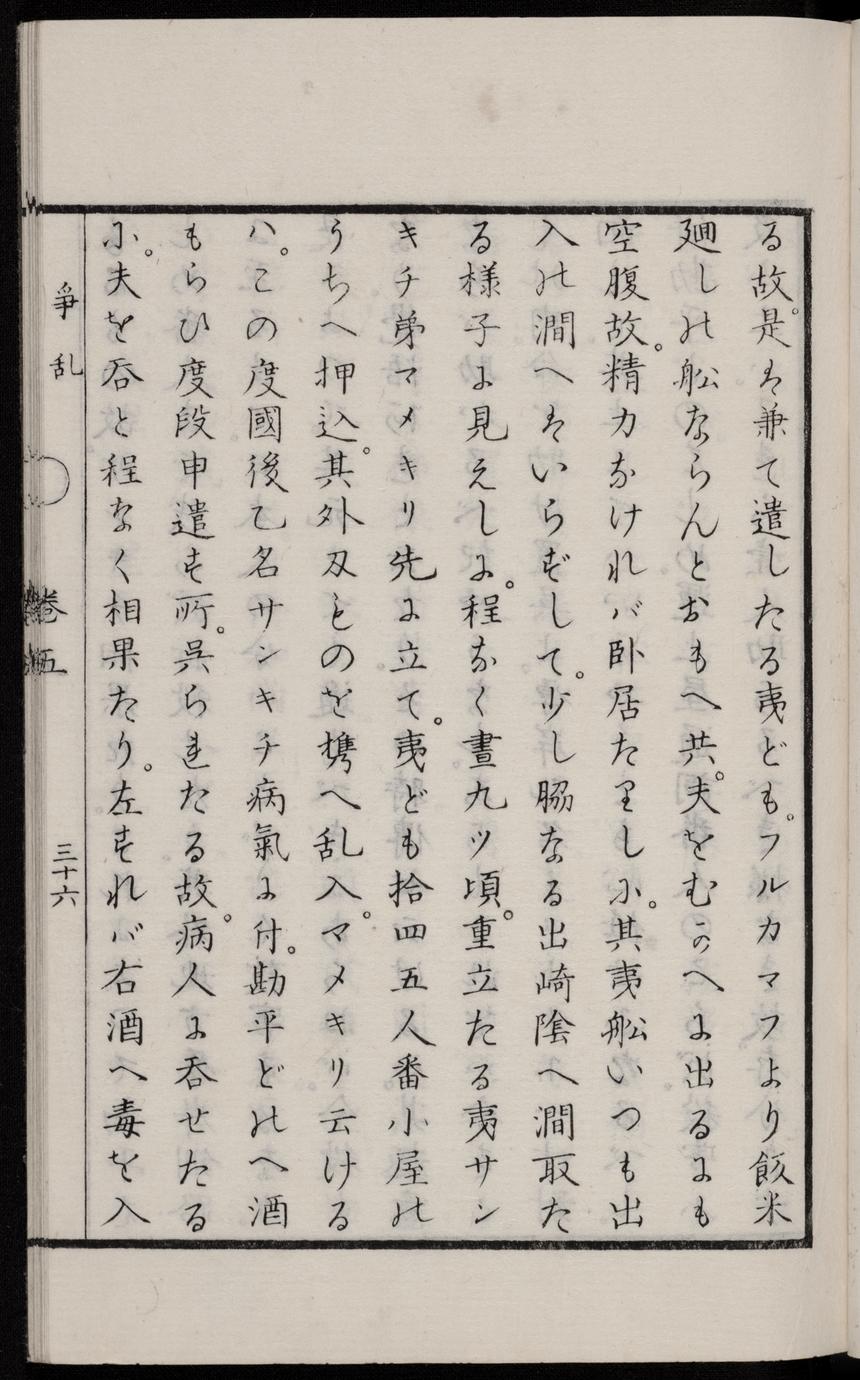 る故。是は兼て遣したる夷ども。フルカマフより飯米
廻しの舩ならんとおもへ共。夫をむかへに出るにも
空腹故。精力なければ卧居たりしに。其夷舩いつも出
入の澗へはいらずして。少し脇なる出崎陰へ澗取た
る様子に見えしに。程なく晝九ツ頃。重立たる夷サン
キチ弟マメキリ先に立て。夷ども拾四五人番小屋の
うちへ押込。其外刄ものを携へ乱入。マメキリ云ける
ハ。この度國後乙名サンキチ病氣に付。勘平どのへ酒
もらひ度段申遣す所。呉られたる故。病人に呑せたる
に。夫を呑と程なく相果たり。左すれバ右酒へ毒を入
爭乱
卷五
三十六